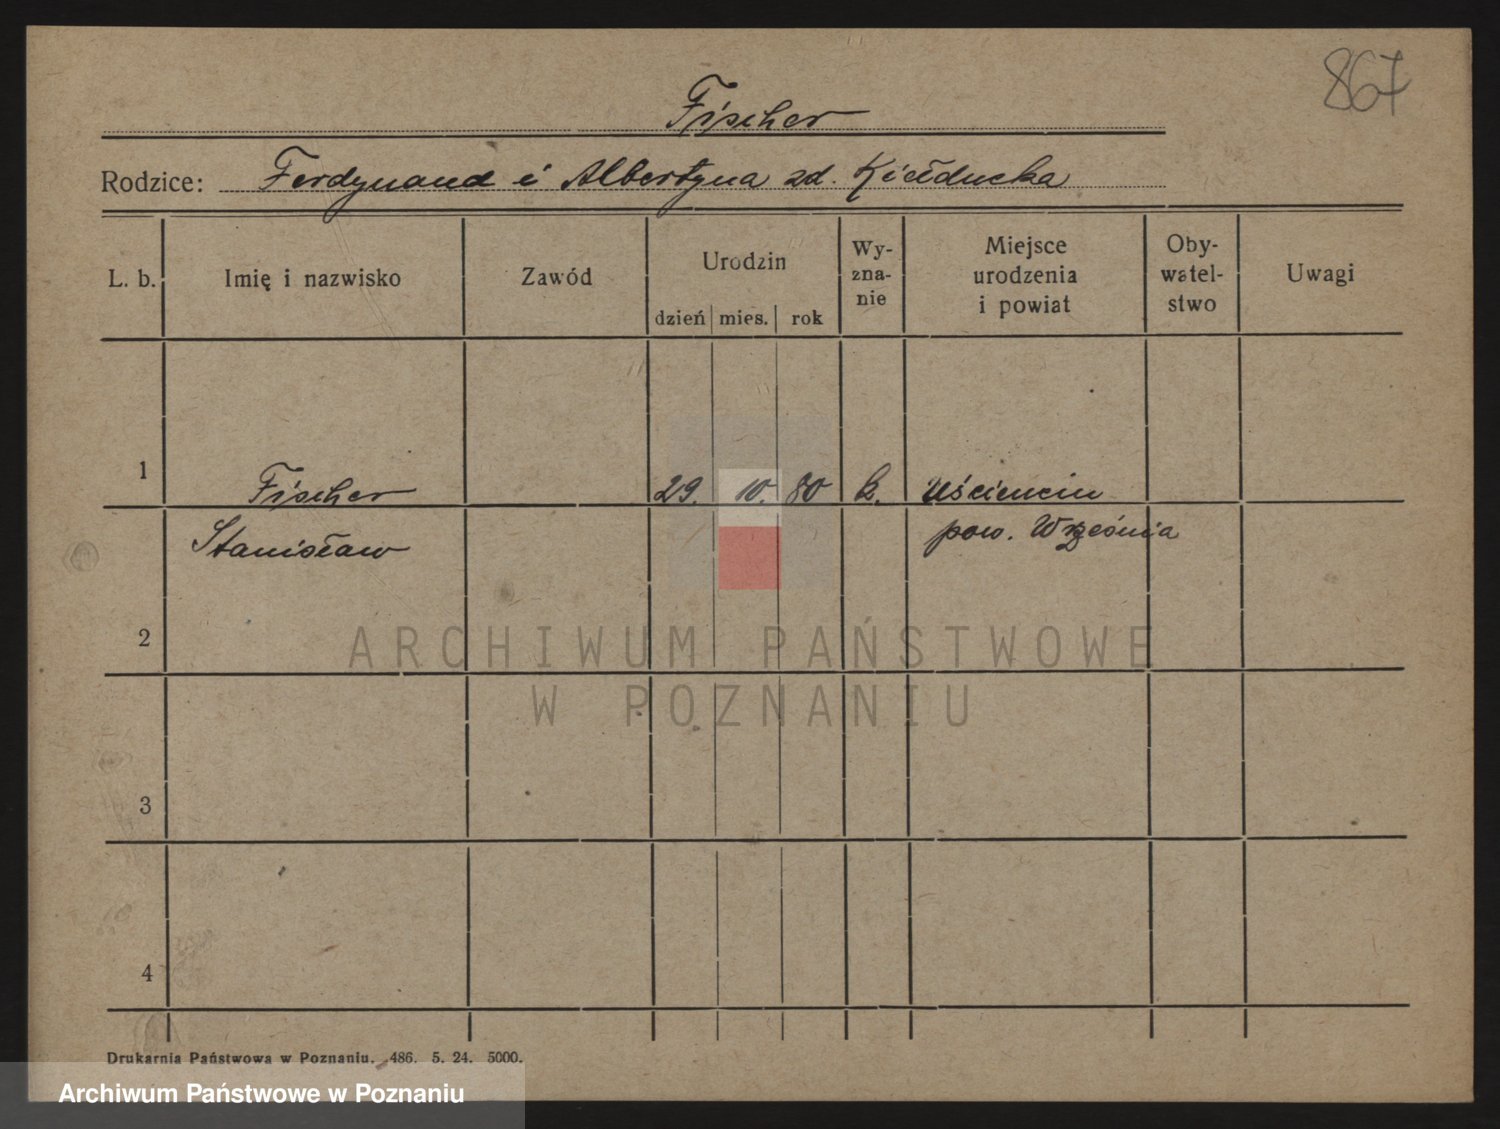 867
Fischer
Rodzice: Ferdynand i Albertyna zd. Kiełducka
L. b. Imię i nazwisko Zawód Urodzin dzień mies. rok Wy-zna-nie Miejsce urodzenia i powiat Oby-watel-stwo Uwagi
1 Fischer 29. 10. 80 k. Uścięcin
Stanisław pow. Września
2
ARCHIWUM PAŃSTWOWE
W POZNANIU
3
4
Drukarnia Państwowa w Poznaniu. 486. 5. 24. 5000.
Archiwum Państwowe w Poznaniu